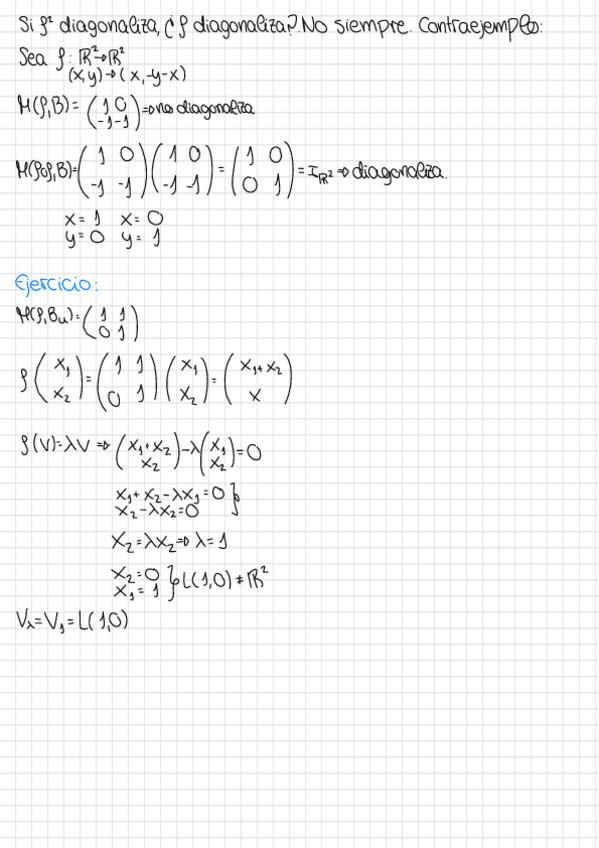 Si f² diagonaliza, ¿f diagonaliza? No siempre. Contraejemplo:
Sea f: ℝ²→ℝ²
(x,y)→(x,-y-x)
M(f,B)= (1 0; -1 -1) ⇒ no diagonaliza
M(f∘f,B)= (1 0; -1 -1) (1 0; -1 -1) = (1 0; 0 1) = I_ℝ² ⇒ diagonaliza.
x=1 x=0
y=0 y=1
Ejercicio:
M(f,Bu)= (1 1; 0 1)
f (x₁; x₂) = (1 1; 0 1) (x₁; x₂) = (x₁+x₂; x)
f(v)=λv ⇒ (x₁+x₂; x₂) -λ (x₁; x₂) =0
x₁+x₂-λx₁=0 }
x₂-λx₂=0
x₂=λx₂ ⇒ λ=1
x₂=0 } L(1,0) ≠ ℝ²
x₁=1
Vλ=V₁=L(1,0)